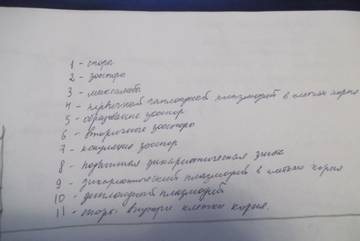 1 - спора
2 - зооспора
3 - миксамеба
4 - первичный гаплоидный плазмодий в клетках корня
5 - образование зооспор
6 - вторичные зооспоры
7 - копуляция зооспор
8 - подвижная дикариотическая зигота
9 - дикариотический плазмодий в клетках корня
10 - диплоидный плазмодий
11 - споры внутри клетки корня.